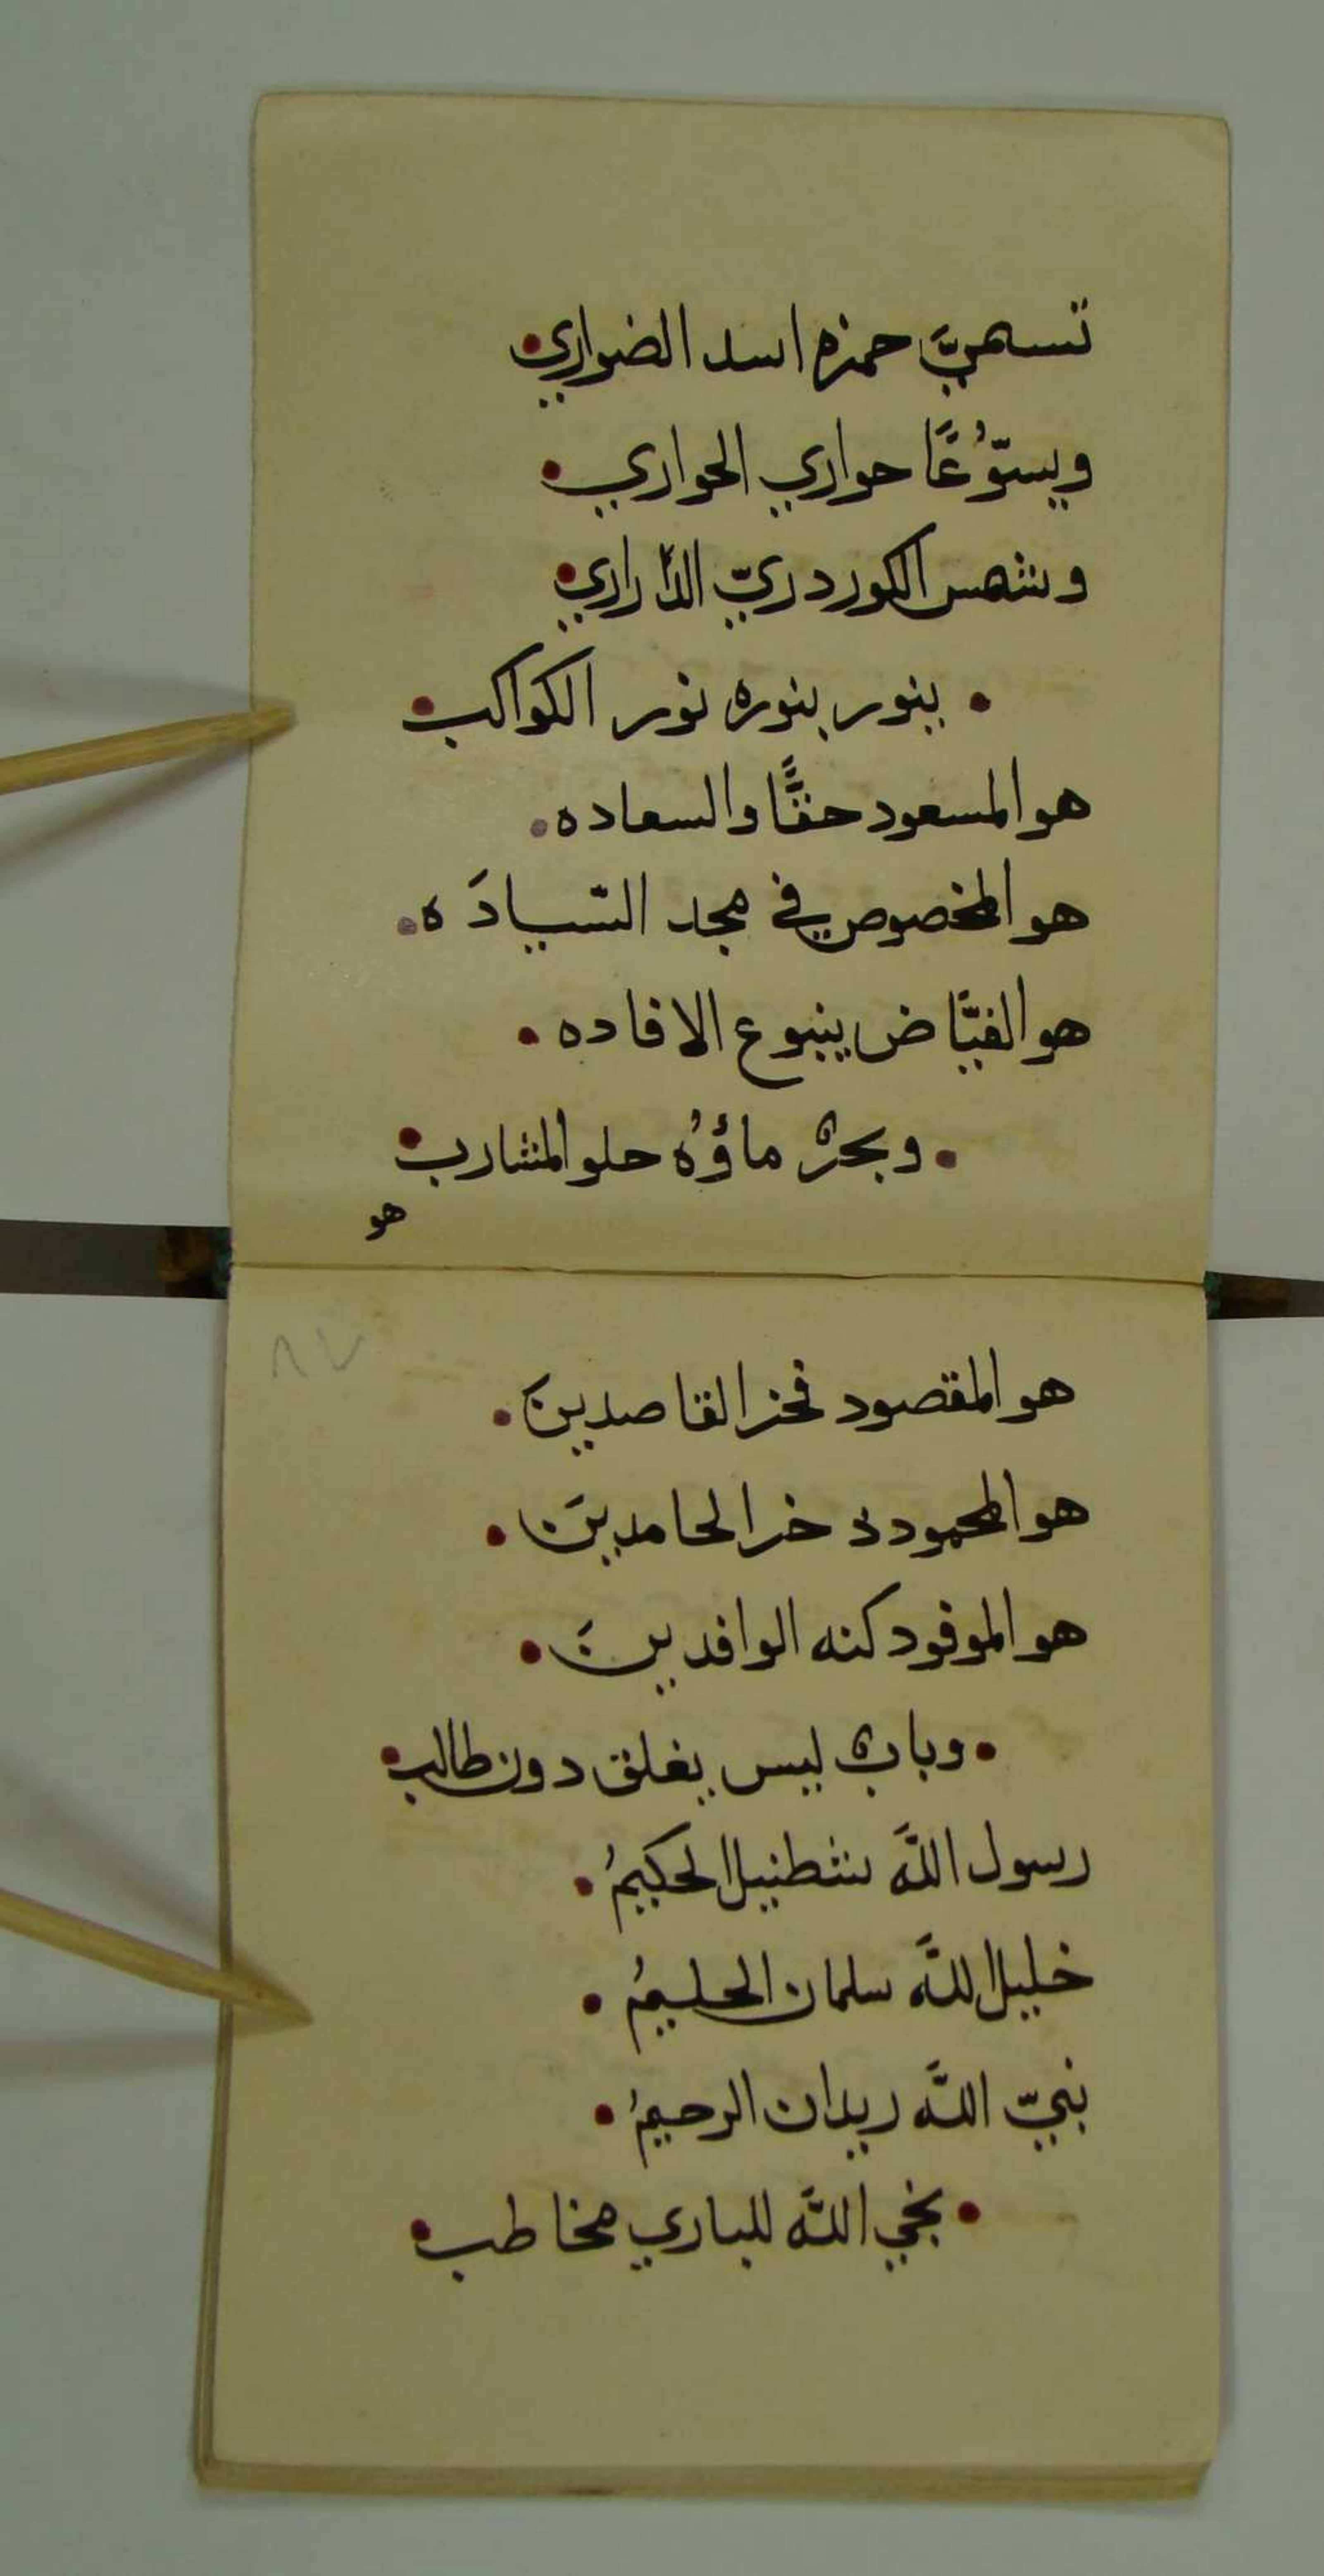 تسميَّ حمزه اسد الضواري
ويستّوُعًا حواري الحواري
وشمس الكور دريّ الدّراري
بنور بنوره نور الكواكب
هو المسعود حقًّا والسعاده
هو المخصوص في مجد السّيادَه
هو الفيَّاض ينبوع الافاده
وبحرٌ ماؤهُ حلو المشارب
هو
٨٧
هو المقصود فخر القاصدين
هو المحمود ذخر الحامدينَ
هو الموفود كنه الوافدينَ
وبابٌ ليس يغلق دون طالب
رسول اللَّه شطنيل الحكيمُ
خليل اللَّه سلمان الحليمُ
نبيّ اللَّه ريدان الرحيمُ
نجي اللَّه للباري مخاطب